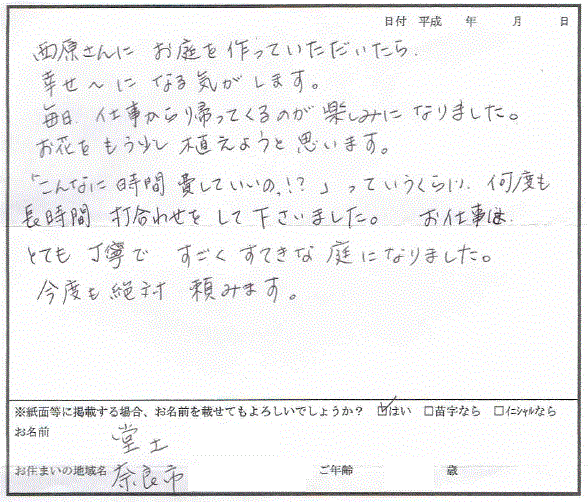 日付 平成 年 月 日
西原さんに お庭を作っていただいたら、
幸せ〜に なる気がします。
毎日 仕事から帰ってくるのが 楽しみに なりました。
お花を もう少し 植えようと 思います。
「こんなに時間 費していいの!?」っていうくらい、何度も
長時間 打合わせを して下さいました。 お仕事は
とても 丁寧で すごく すてきな 庭になりました。
今度も 絶対 頼みます。
※紙面等に掲載する場合、お名前を載せてもよろしいでしょうか? ☑はい □苗字なら □イニシャルなら
お名前 堂土
お住まいの地域名 奈良市 ご年齢 歳